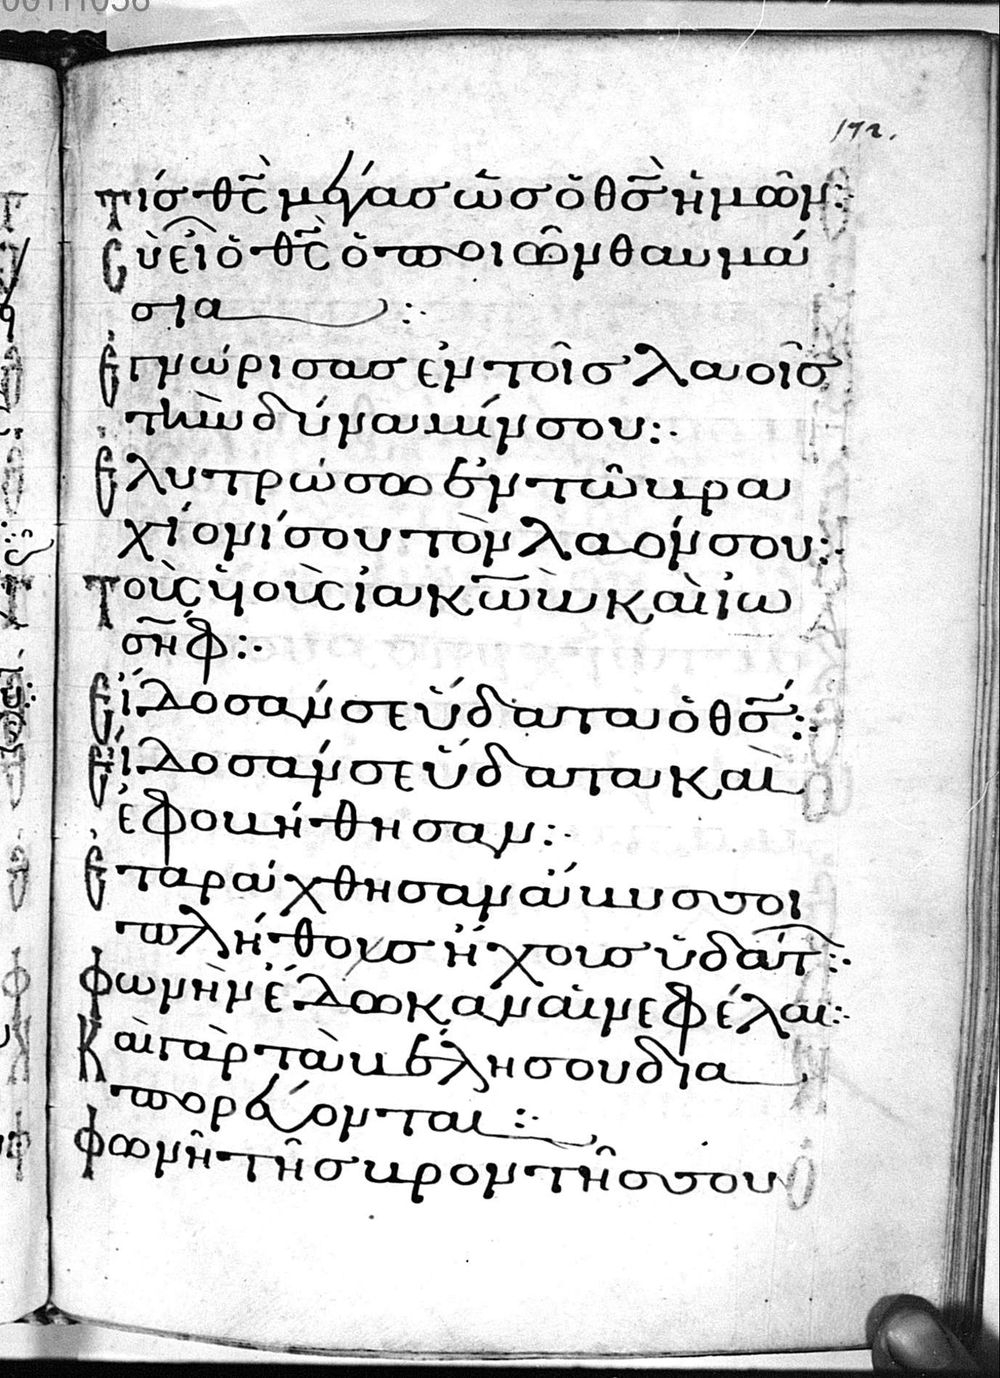 00111056
172.
τίσ θ̅ς̅ μέγασ ὡσ ὁ θ̅σ̅ ἡμῶν:
Σὺ εἶ ὁ θ̅ς̅ ὁ ποιῶν θαυμά
σια :·
Ἐγνώρισασ ἐν τοῖσ λαοῖσ
τὴν δύναμίν σου:·
Ἐλυτρώσω ἐν τῶ βρα
χίονί σου τὸν λαόν σου:·
Τοὺς ὑιοὺς ἰακὼβ καὶ ἰω
σήφ:·
Εἴδοσάν σε ὕδατα ὁ θ̅σ̅:·
Εἴδοσάν σε ὕδατα καὶ
ἐφοβήθησαν:·
Ἐταράχθησαν ἄβυσσοι
πλήθουσ ἤχουσ ὑδάτ:·
Φωνὴν ἔδωκαν αἱ νεφέλαι:·
Καὶ γὰρ τὰ βέλη σου δια
πορεύονται :·
Φωνὴ τῆσ βροντῆσ σου